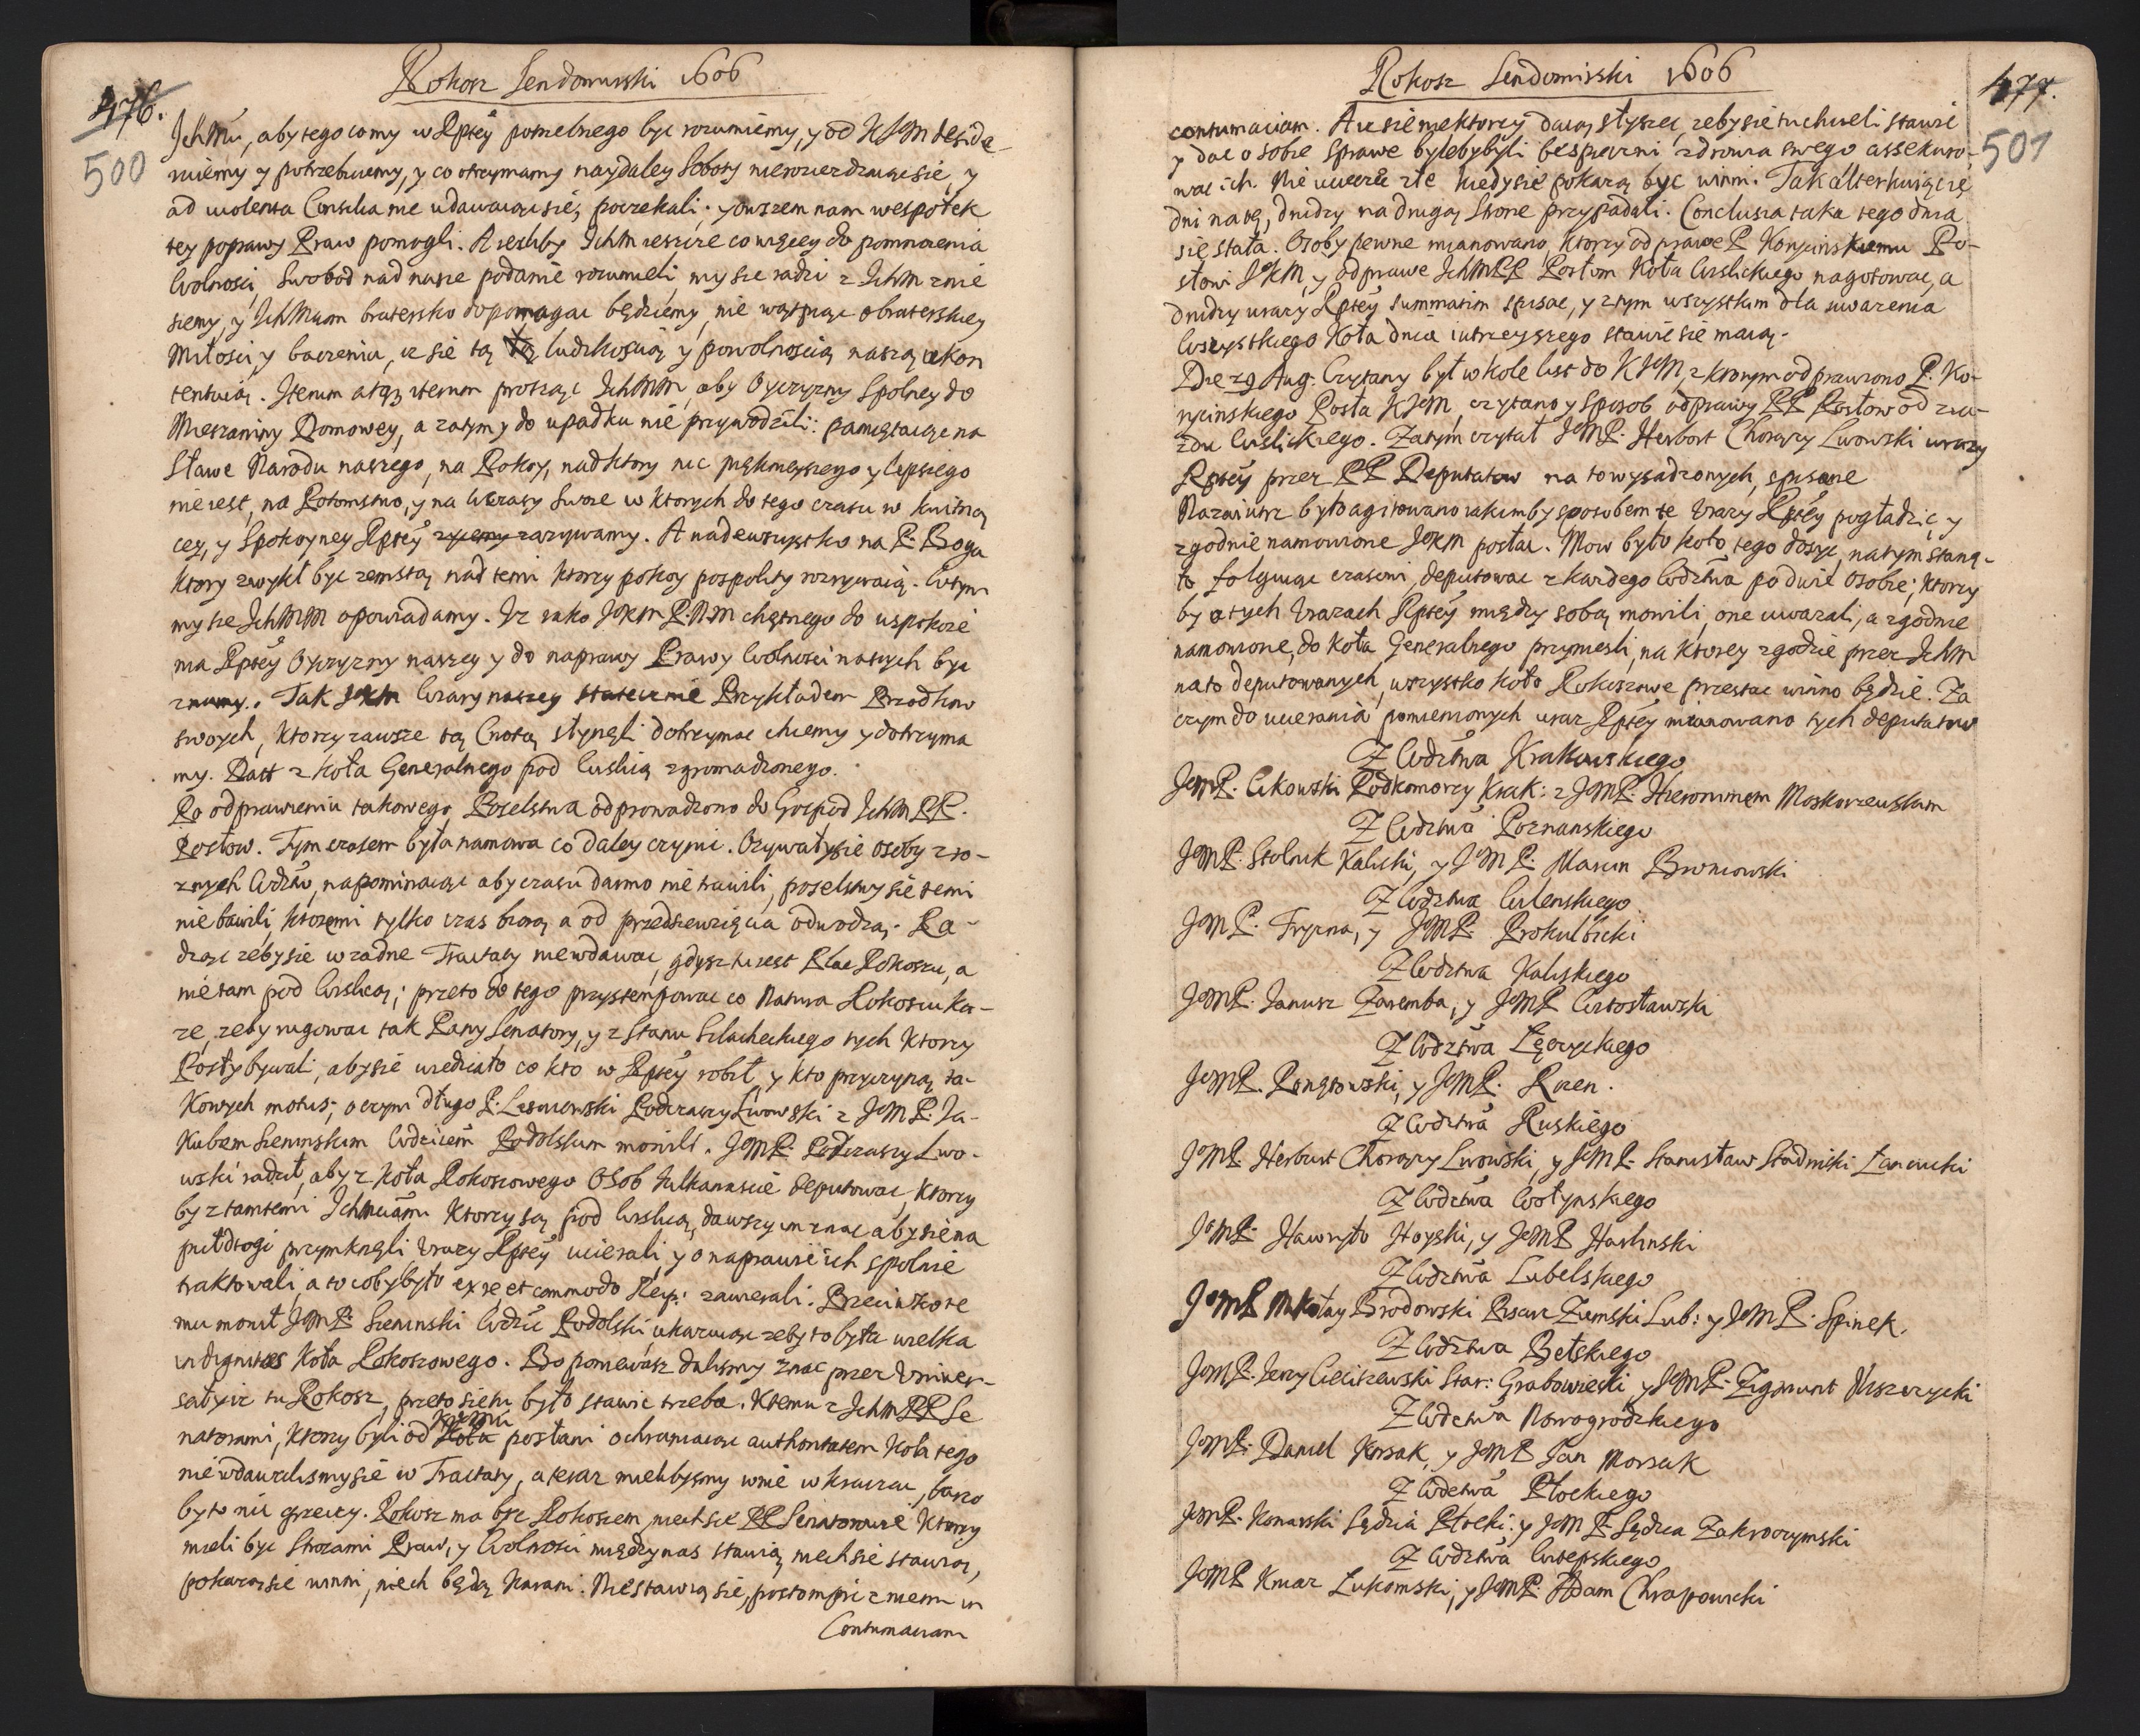 Rokosz Sendomirski 1606
476.
500
IchMći, aby tego co my w Rptey potrzebnego być rozumiemy, y od KJMm deside-
ruiemy y potrzebuiemy, y co otrzymamy naydaley Soboty nierozierdzaiąc się, y
ad violenta Consilia nie udawaiąc się, poczekali; y owszem nam wespołek
tey poprawy Praw pomogli. A ieshby IchM ieszcze co więcey do pomnozenia
Wolnosci, Swobod nad nasze podanie rozumieli, my sie radzi z IchM znie
siemy, y IchMciom bratersko dopomagac będziemy, nie wątpiąc o braterskiey
Miłosci y baczeniu, ze sie tą tą ludzkoscią y powolnoscią naszą ukon
tentuią. Iterum atqz iterum prosząc IchMM, aby Oyczyzny Spolney do
Mieszaniny Domowey, a zatym y do upadku nie przywodzili: pamiętaiąc na
Sławe Narodu naszego, na Pokoy, nad ktory nic pięknieyszego y lepszego
nie iest, na Potomstwo, y na Wczasy Swoie w ktorych do tego czasu w kwitną
cey, y Spokoyney Rptey zyiemy zazywamy. A nadewszystko na P. Boga
ktory zwykł byc zemstą nad temi ktorzy pokoy pospolity rozrywaią. W tym
my sie IchMM opowiadamy. Iz iako JoKM P.NM chętnego do uspokoie
nia Rptey Oyczyzny naszey y do naprawy Prawy Wolnosci naszych byc
znamy. Tak JoKM Wiary naszey statecznie Przykładem Przodkow
swoych, ktorzy zawsze tą Cnotą słynęli dotrzymac chcemy y dotrzyma
my. Datt z koła Generalnego pod Wislicą zgromadzonego.
Po odprawieniu takowego Poselstwa odprowadzono do Gospod IchM PP.
Posłow. Tym czasem była namowa co daley czynic. Ozywały sie osoby z ro-
znych Wdztw, napominaiąc aby czasu darmo nie trawili, poselstwy sie temi
nie bawili, ktoremi tylko czas biorą a od przedsiewzięcia odwodzą. Ra-
dząc zeby sie w zadne Tractaty niewdawac, gdysz tu iest Plac Rokoszu, a
nie tam pod Wislicą; przeto do tego przystempowac co Natura Rokoszu ka-
ze, zeby rugowac tak Pany Senatory, y z Stanu Szlacheckiego tych ktorzy
Posły bywali, aby sie wiedziało co kto w Rptey robił, y kto przyczyną ta-
kowych motus; o czym długo P. Lesniewski Podczaszy Lwowski z JoMP. Ia-
kubem Sieninskim Wdzicem Podolskim mowili. JoMP. Podczaszy Lwo-
wski radził, aby z koła Rokoszowego Osob kilkanascie deputowac, ktorzy
by z tamtemi Ichmciami ktorzy są pod Wislicą, dawszy im znac aby sie na
puł drogi przymknęli Urazy Rptey ucierali, y o naprawie ich spolnie
traktowali, a to coby było ex re et commodo Reip: zawierali. Przeciwko te
mu mowił JoMP. Sieninski Wdzic Podolski ukazuiąc zeby to była wielka
indignitas Koła Rokoszowego. Bo poniewasz dalismy znac przez Univer-
sały iz tu Rokosz, przeto sie tu było stawic trzeba. Ktemu z IchM PP Se
natorami, ktorzy byli od Koła KJMci posłani ochraniaiąc authoritatem Koła tego
nie wdawalismy sie w Tractaty, a teraz mielibysmy w nie wkraczac, barzo
by to nie grzeczy. Rokosz ma byc Rokoszem, niech sie PP Senatorowie ktorzy
mieli byc Strozami Praw, y Wolnosci między nas stawią, niech sie stawią,
pokazą sie winni, niech będą karani. Nie stawią sie, postompic z niemi in
Contumaciam
Rokosz Sendomirski 1606
477.
501
contumaciam. A ze sie niektorzy daią słyszec, zeby sie tu chcieli stawic
y dac o sobie sprawe byleby byli bespieczni zdrowia swego assekuro-
wac ich. Nie uczcie złe kiedy sie pokazą byc winni. Tak alterkuiąc ię
dni na tę, drudzy na drugą Strone przypadali. Conclusia taka tego dnia
się stała. Osoby pewne mianowano, ktorzy odprawe P. Konycinskiemu Po-
słowi JKM, y odprawe IchM PP Posłom Koła Wislickiego nagotowac, a
drudzy urazy Rptey summatim spisac, y z tym wszystkim dla uwazenia
Wszystkiego Koła dnia iutrzeyszego stawic sie maią.
Die 29 Aug. Czytany był w kole list do KJM, z ktorym odprawiono P. Ko-
nycinskiego Posła KJM, czytano y Sposob odprawy PP Posłow od zia-
zdu Wislickiego. Zatym czytał JMP. Herbort Chorązy Lwowski urazy
Rptey przez PP Deputatow na to wysadzonych, spisane
Nazaiutrz było agitowano iakimby sposobem te Urazy Rptey pogładzic, y
zgodnie namowione JoKM posłac. Mow było koło tego dosyc, na tym stanę-
ło folguiąc czasowi, deputowac z kazdego Wdztwa po dwie Osobie; ktorzy
by o tych Urazach Rptey między sobą mowili, one uwazali, a zgodnie
namowione, do koła Generalnego przyniesli, na ktorey zgodzie przez IchM
na to deputowanych, wszystko koło Rokoszowe przestac winno będzie. Za
czym do ucierania pomienionych uraz Rptey mianowano tych deputatow
Z Wdztwa Krakowskiego
JoMP. Cikowski Podkomorzy Krak: z JoMP. Hieronimem Moskorzewskim
Z Wdztwa Poznanskiego
JoMP. Stolnik Kaliski, y JoMP. Marcin Broniowski
Z Wdztwa Wilenskiego
JoMP. Fryzna, y JoMP. Prokulbicki
Z Wdztwa Kaliskiego
JoMP. Ianusz Zaremba, y JoMP Witosławski
Z Wdztwa Lęczyckiego
JoMP. Pongtowski, y JoMP. Roen.
Z Wdztwa Ruskiego
JoMP. Herburt Chorązy Lwowski, y JoMP. Stanisław Stadnicki Łancucki
Z Wdztwa Wołynskiego
JoMP. Hawryło Hoyski, y JoMP Harlinski
Z Wdztwa Lubelskiego
JoMP Mikołay Brodowski Pisarz Ziemski Lub: y JoMP. Spinek.
Z Wdztwa Bełskiego
JoMP. Ierzy Cieciszewski Star: Grabowiecki y JoMP. Zigmunt Uszczycki
Z Wdztwa Nowogrodzkiego
JoMP. Daniel Korsak, y JoMP Jan Morsak
Z Wdztwa Płockiego
JoMP. Konarski Sędzia Płocki: y JoMP. Sędzia Zakroczymski
Z Wdztwa Witepskiego
JoMP Kniaz Lukomski, y JoMP. Adam Chrapowicki